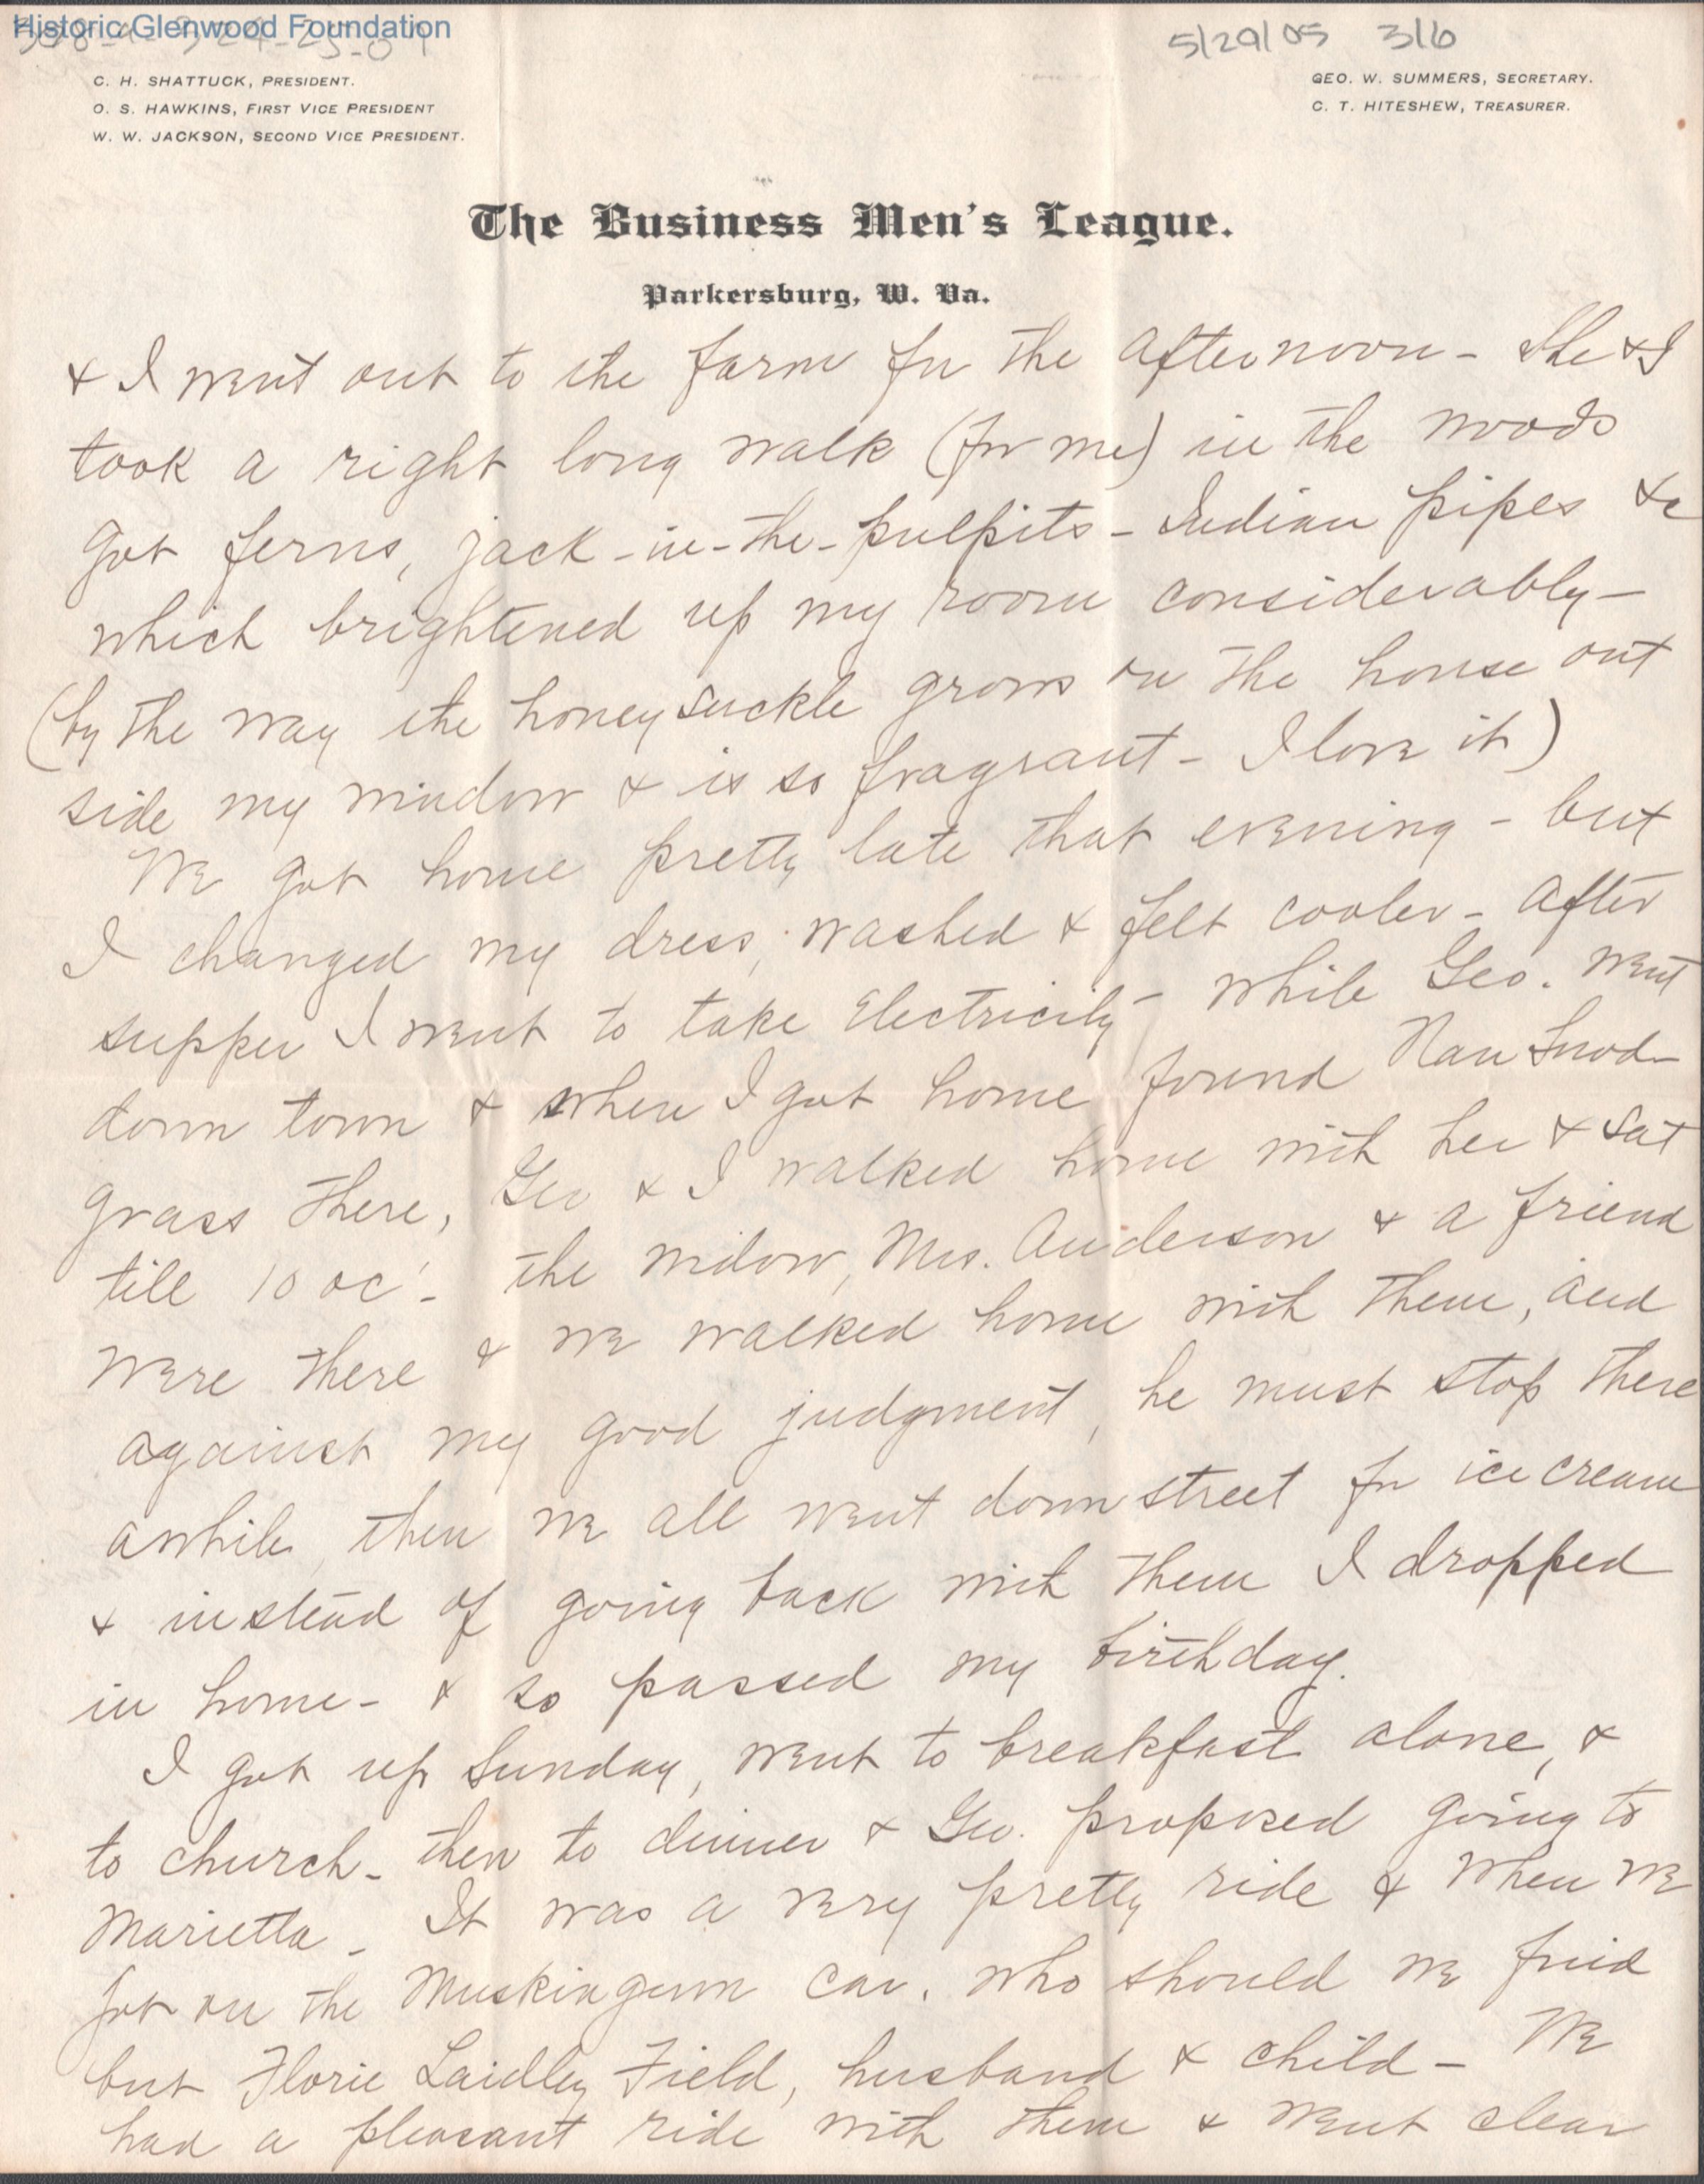 Historic Glenwood Foundation
5/29/05 3/6
C. H. SHATTUCK, PRESIDENT.
O. S. HAWKINS, FIRST VICE PRESIDENT
W. W. JACKSON, SECOND VICE PRESIDENT.
GEO. W. SUMMERS, SECRETARY.
C. T. HITESHEW, TREASURER.
The Business Men's League.
Parkersburg, W. Va.
& I went out to the farm for the afternoon - She & I
took a right long walk (for me) in the woods
got ferns, jack-in-the-pulpits - Indian pipes &c
which brightened up my room considerably -
(by the way the honeysuckle grows on the house out
side my window & is so fragrant - I love it)
We got home pretty late that evening - but
I changed my dress, washed & felt cooler - after
supper I went to take Electricity - while Geo. went
down town & when I got home found Nan Snod-
grass there, Geo & I walked home with her & sat
till 10 oc' - the widow, Mrs. Anderson & a friend
were there & we walked home with them, and
against my good judgment, he must stop there
awhile, then we all went down street for ice cream
& instead of going back with them I dropped
in home - & so passed my birthday.
I got up Sunday, went to breakfast alone, &
to church - then to dinner & Geo. proposed going to
Marietta - It was a very pretty ride & when we
got on the Muskingum car, who should we find
but Florie Laidley Field, husband & child - We
had a pleasant ride with them & went clear